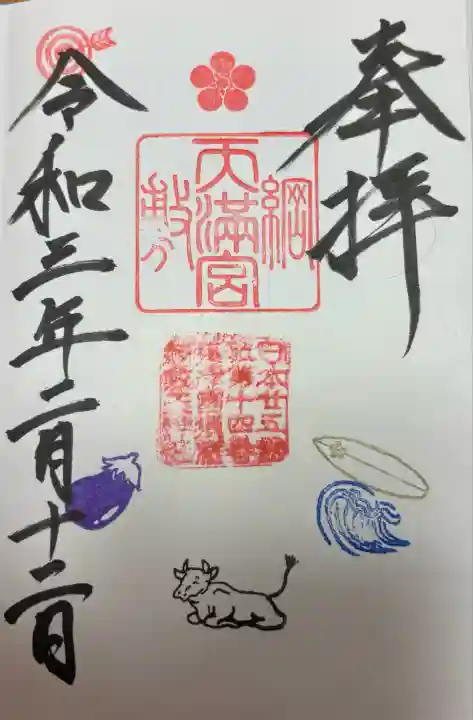 奉拝
綱
天満宮
敷
日本廿五
社第十四番
令和三年二月十二日